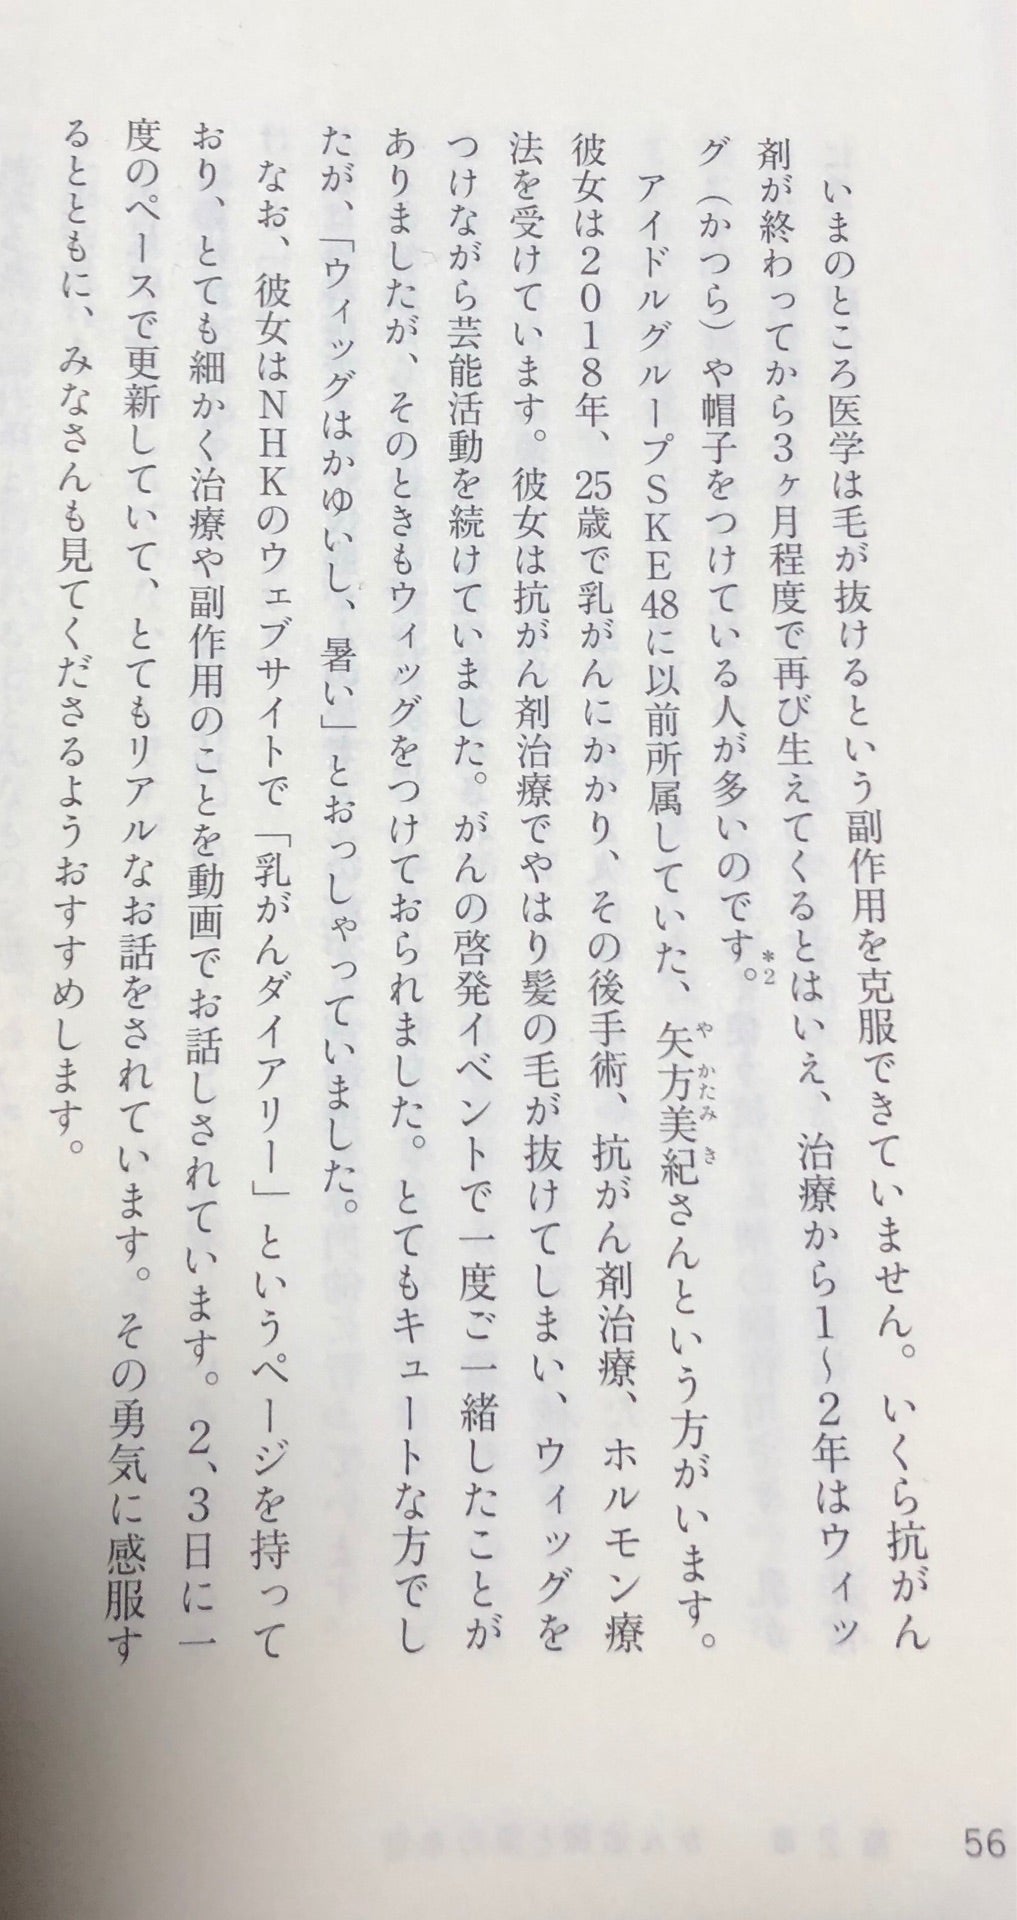 いまのところ医学は毛が抜けるという副作用を克服できていません。いくら抗がん
剤が終わってから3ヶ月程度で再び生えてくるとはいえ、治療から1〜2年はウィッ
グ（かつら）や帽子をつけている人が多いのです。*2
アイドルグループSKE48に以前所属していた、矢方美紀さんという方がいます。
やかたみき
彼女は2018年、25歳で乳がんにかかり、その後手術、抗がん剤治療、ホルモン療
法を受けています。彼女は抗がん剤治療でやはり髪の毛が抜けてしまい、ウィッグを
つけながら芸能活動を続けていました。がんの啓発イベントで一度ご一緒したことが
ありましたが、そのときもウィッグをつけておられました。とてもキュートな方でし
たが、「ウィッグはかゆいし、暑い」とおっしゃっていました。
なお、彼女はNHKのウェブサイトで「乳がんダイアリー」というページを持って
おり、とても細かく治療や副作用のことを動画でお話しされています。2、3日に一
度のペースで更新していて、とてもリアルなお話をされています。その勇気に感服す
るとともに、みなさんも見てくださるようおすすめします。
56